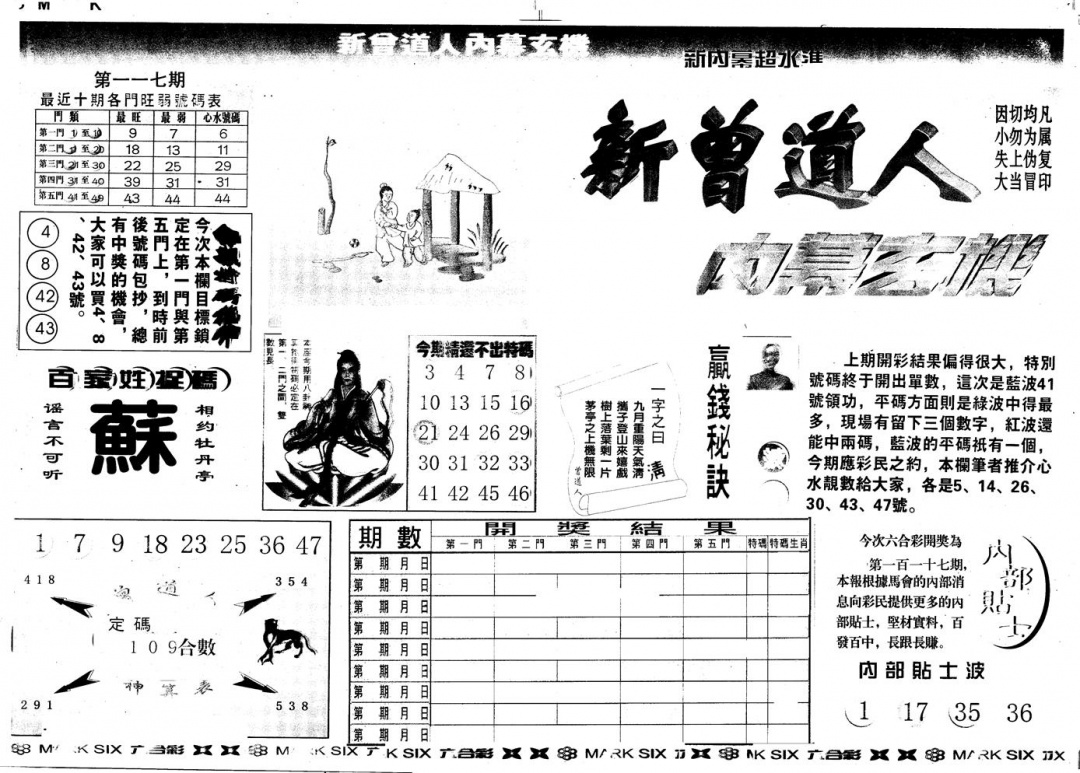 新曾道人內幕玄機
新內幕超水準
第一一七期
最近十期各門旺弱號碼表
門類 最旺 最弱 心水號碼
第一門 1 至 10 9 7 6
第二門 11 至 20 18 13 11
第三門 21 至 30 22 25 29
第四門 31 至 40 39 31 31
第五門 41 至 49 43 44 44
新曾道人
內幕玄機
因切均凡
小勿为属
失上伪复
大当冒印
4
8
42
43
今次本欄目標鎖
定在第一門與第
五門上，到時前
後號碼包抄，總
有中獎的機會，
大家可以買4、8
、42、43號。
百家姓捉碼
相约牡丹亭
蘇
谣言不可听
第一、二門之間，雙
數見長
今期精選不出特碼
3 4 7 8
10 13 15 16
21 24 26 29
30 31 32 33
41 42 45 46
一字之曰：清
九月重陽天氣清
攜子登山來嬉戲
樹上落葉剩一片
茅亭之上機無限
曾道人
贏錢秘訣
上期開彩結果偏得很大，特別
號碼終于開出單數，這次是藍波41
號領功，平碼方面則是綠波中得最
多，現場有留下三個數字，紅波還
能中兩碼，藍波的平碼衹有一個，
今期應彩民之約，本欄筆者推介心
水靚數給大家，各是5、14、26、
30、43、47號。
1 7 9 18 23 25 36 47
418 354
曾道人
定碼
109合數
神算表
291 538
期數 開獎結果
第一門 第二門 第三門 第四門 第五門 特碼 特碼生肖
第 期 月 日
第 期 月 日
第 期 月 日
第 期 月 日
第 期 月 日
第 期 月 日
第 期 月 日
第 期 月 日
第 期 月 日
今次六合彩開獎為
第一百一十七期，
本報根據馬會的內部消
息向彩民提供更多的內
部貼士，堅材實料，百
發百中，長跟長賺。
內部貼士
內部貼士波
1 17 35 36
MARK SIX 六合彩 MARK SIX 六合彩 MARK SIX 六合彩 MARK SIX